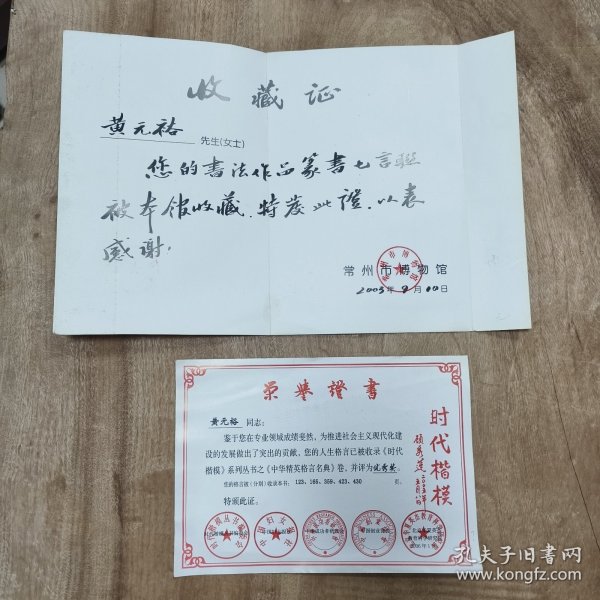 收藏证
黄元裕 先生(女士)
您的书法作品篆书七言联
被本馆收藏.特发此證.以表
感谢,
常州市博物馆
2003年9月10日
荣誉證書
黄元裕 同志:
鉴于您在专业领域成绩斐然,为推进社会主义现代化建
设的发展做出了突出的贡献,您的人生格言已被收录《时代
楷模》系列丛书之《中华精英格言名典》卷,并评为优秀奖。
您的格言被(分别)收录本书: 123、165、359、423、430 页。
特颁此证。
时代楷模
孔夫子旧书网
www.kongfz.com